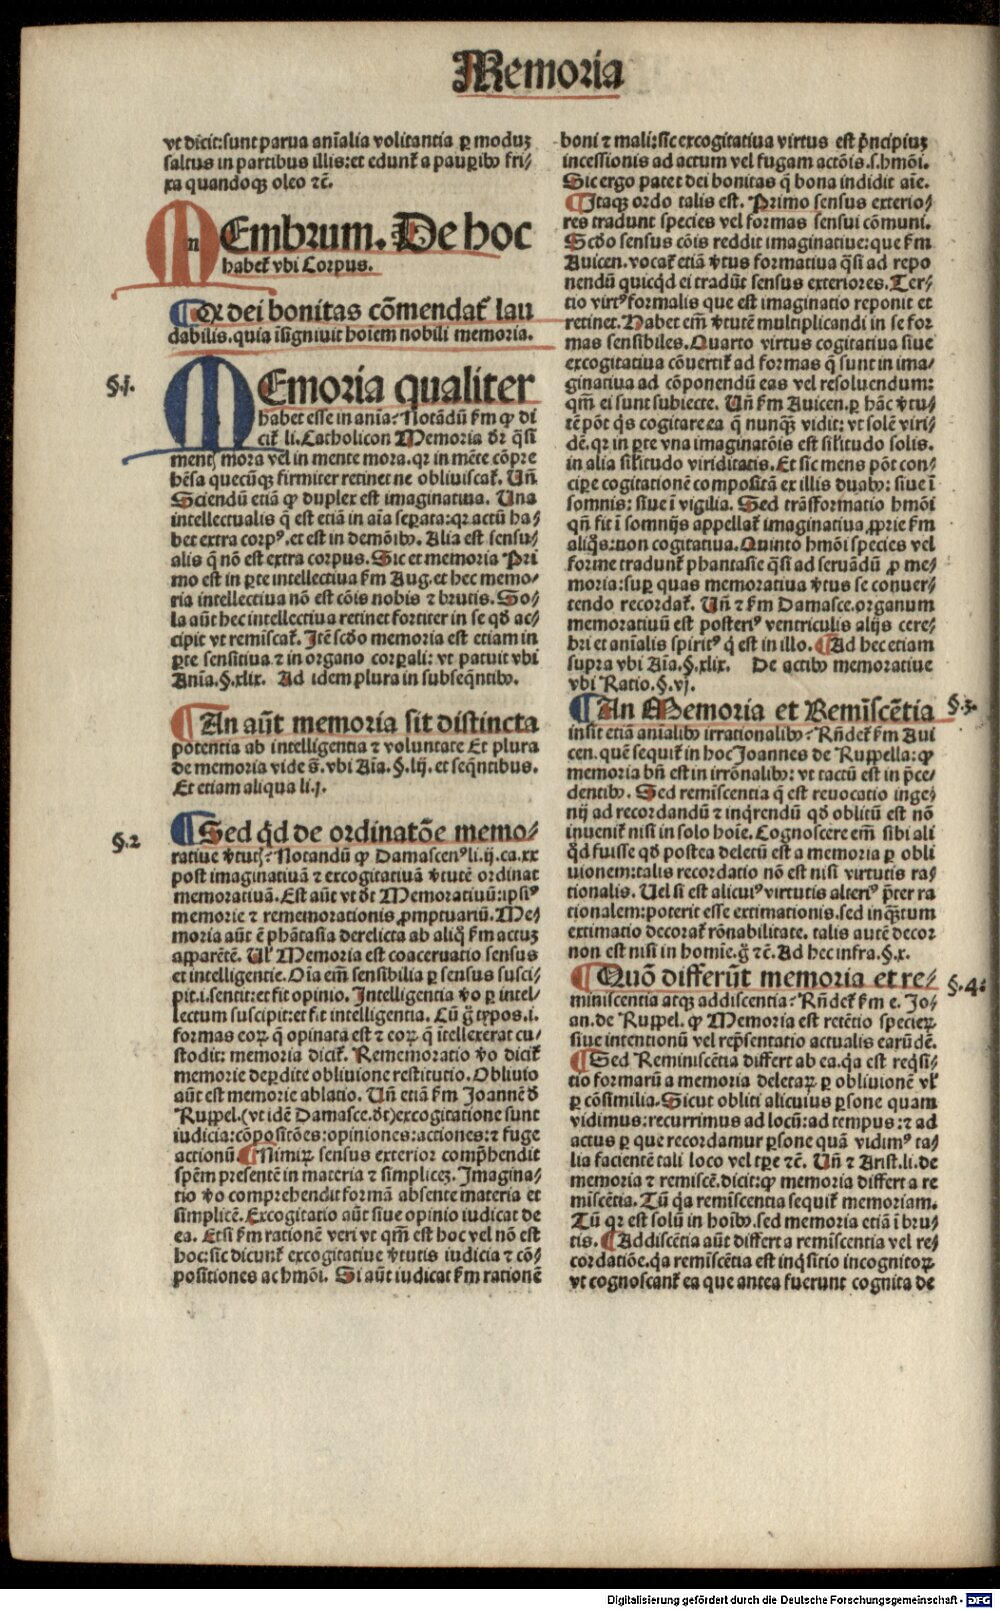 Memoria
vt dicit: sunt parua aīalia volitantia ꝑ moduʒ
saltus in partibus illis: et edunt̄ a pauꝑibꝰ fri/
xa quandoqꝫ oleo ⁊c̄.
MEmbrum. De hoc
habet̄ vbi Corpus.
¶ Qꝛ dei bonitas cōmendat̄ lau
dabilis. quia īsigniuit hoīem nobili memoria.
§.j.
MEmoria qualiter
habet esse in anīa? Notādū ẜm ꝙ di
cit̄ li. Catholicon Memoria dr̄ q̄si
mentꝭ mora vel in mente mora. qꝛ in mēte cōpre
hēsa quecūqꝫ firmiter retinet ne obliuiscat̄. Uñ
Sciendū etiā ꝙ duplex est imaginatiua. Una
intellectualis q̄ est etiā in aīa seꝑata: qꝛ actū ha/
bet extra corpꝰ. et est in demōibꝰ. Alia est sensu/
alis q̄ nō est extra corpus. Sic et memoria Pri
mo est in ꝑte intellectiua ẜm Aug. et hec memo/
ria intellectiua nō est cōis nobis ⁊ brutis. So/
la aūt hec intellectiua retinet fortiter in se qđ ac/
cipit vt remīscat̄. Itē scđo memoria est etiam in
ꝑte sensitiua ⁊ in organo corꝑali: vt patuit vbi
Anīa. §. xlix. Ad idem plura in subseq̄ntibꝰ.
¶ An aūt memoria sit distincta
potentia ab intelligentia ⁊ voluntate Et plura
de memoria vide s̄. vbi Aīa. §. lij. et seq̄ntibus.
Et etiam aliqua li. j.
§.2
¶ Sed qͥd de ordinatōe memo/
ratiue v̄tutꝭ? Notandū ꝙ Damascenꝰ li. ij. ca. xx
post imaginatiuā ⁊ excogitatiuā v̄tutē ordinat
memoratiuā. Est aūt vt dt̄ Memoratiuū: ipsiꝰ
memorie ⁊ rememorationis ꝓmptuariū. Me/
moria aūt ē phātasia derelicta ab aliq̊ ẜm actuʒ
apparētē. Ul̄ Memoria est coaceruatio sensus
et intelligentie. Oīa em̄ sensibilia ꝑ sensus susci/
pit. i. sentit: et fit opinio. Intelligentia v̄o ꝑ intel/
lectum suscipit: et fit intelligentia. Cū g̊ typos. i.
formas eoꝝ q̄ opinata est ⁊ eoꝝ q̄ ītellexerat cu/
stodit: memoria dicit̄. Rememoratio v̄o dicit̄
memorie deꝑdite obliuione restitutio. Obliuio
aūt est memorie ablatio. Uñ etiā ẜm Joannē đ
Ruppel. (vt idē Damasce. dt̄) excogitatione sunt
iudicia: cōpositōes: opiniones: actiones: ⁊ fuge
actionū ¶ Nimiꝝ sensus exterior comp̄hendit
spēm presentē in materia ⁊ simpliceʒ. Imagina/
tio v̄o comprehendit formā absente materia et
simplicē. Excogitatio aūt siue opinio iudicat de
ea. Etsi ẜm rationē veri vt qm̄ est hoc vel nō est
hoc: sic dicunt̄ excogitatiue v̄tutis iudicia ⁊ cō/
positiones ac hmōi. Si aūt iudicat ẜm rationē
boni ⁊ mali: sic excogitatiua virtus est pͥncipiuʒ
incessionis ad actum vel fugam actōis. s. hmōi.
Sic ergo patet dei bonitas q̄ bona indidit aīe.
¶ Itaqꝫ ordo talis est. Primo sensus exterio/
res tradunt species vel formas sensui cōmuni.
Scđo sensus cōis reddit imaginatiue: que ẜm
Auicen. vocat̄ etiā v̄tus formatiua q̄si ad repo
nendū quicqͥd ei tradūt sensus exteriores. Ter/
tio virtꝰ formalis que est imaginatio reponit et
retinet. Habet em̄ v̄tutē multiplicandi in se for
mas sensibiles. Quarto virtus cogitatiua siue
excogitatiua cōuertit̄ ad formas q̄ sunt in ima/
ginatiua ad cōponendū eas vel resoluendum:
qm̄ ei sunt subiecte. Uñ ẜm Auicen. ꝑ hāc v̄tu/
tē pōt qͥs cogitare ea q̄ nunqꝫ vidit: vt solē viri/
dē. qꝛ in ꝑte vna imaginatōis est sil̄itudo solis.
in alia sil̄itudo viriditatis. Et sic mens pōt con/
ciꝑe cogitationē compositā ex illis duabꝰ: siue ī
somnis: siue ī vigilia. Sed trāsformatio hmōi
qñ fit ī somnijs appellat̄ imaginatiua ꝓprie ẜm
aliqͦs: non cogitatiua. Quinto hmōi species vel
forme tradunt̄ phantasie q̄si ad seruādū ꝓ me/
moria: suꝑ quas memoratiua v̄tus se conuer/
tendo recordat̄. Uñ ⁊ ẜm Damasce. organum
memoratiuū est posteriꝰ ventriculis alijs cere/
bri et anīalis spiritꝰ qͥ est in illo. ¶ Ad hec etiam
supra vbi Aīa. §. xlix. De actibꝰ memoratiue
vbi Ratio. §. vj.
¶ An Memoria et Remīscētia §.3.
insit etiā anīalibꝰ irrationalibꝰ? Rñdet̄ ẜm Aui
cen. quē sequit̄ in hoc Joannes de Ruppella: ꝙ
memoria bñ est in irrōnalibꝰ: vt tactū est in p̄ce/
dentibꝰ. Sed remīscentia q̄ est reuocatio inge/
nij ad recordandū ⁊ inqͥrendū qđ oblitū est nō
inuenit̄ nisi in solo hoīe. Cognoscere em̄ sibi ali
qͥd fuisse qđ postea deletū est a memoria ꝑ obli
uionem: talis recordatio nō est nisi virtutis ra/
tionalis. Uel si est alicuiꝰ virtutis alteriꝰ p̄ter ra
tionalem: poterit esse extimationis. sed inqͣntum
extimatio decorat̄ rōnabilitate. talis autē decor
non est nisi in homīe. g̊ ⁊c̄. Ad hec infra. §. x.
¶ Quō differūt memoria et re/ §.4:
miniscentia atqꝫ addiscentia? Rñdet̄ ẜm e. Jo/
an. de Ruppel. ꝙ Memoria est retētio specieꝝ
siue intentionū vel rep̄sentatio actualis earūdē.
¶ Sed Reminiscētia differt ab ea. qͥa est reqͥsi/
tio formarū a memoria deletaꝝ ꝑ obliuionē vl̄
ꝑ cōsimilia. Sicut obliti alicuius ꝑsone quam
vidimus: recurrimus ad locū: ad tempus: ⁊ ad
actus ꝑ que recordamur ꝑsone quā vidimꝰ ta/
lia facientē tali loco vel tꝑe ⁊c̄. Uñ ⁊ Arist. li. de
memoria ⁊ remiscē. dicit: ꝙ memoria differt a re
mīscētia. Tū qͥa remīscentia sequit̄ memoriam.
Tū qꝛ est solū in hoībꝰ. sed memoria etiā ī bru/
tis. ¶ Addiscētia aūt differt a remīscentia vel re/
cordatiōe. qͥa remīscētia est inqͥsitio incognitoꝝ
vt cognoscant̄ ea que antea fuerunt cognita de
Digitalisierung gefördert durch die Deutsche Forschungsgemeinschaft - DFG